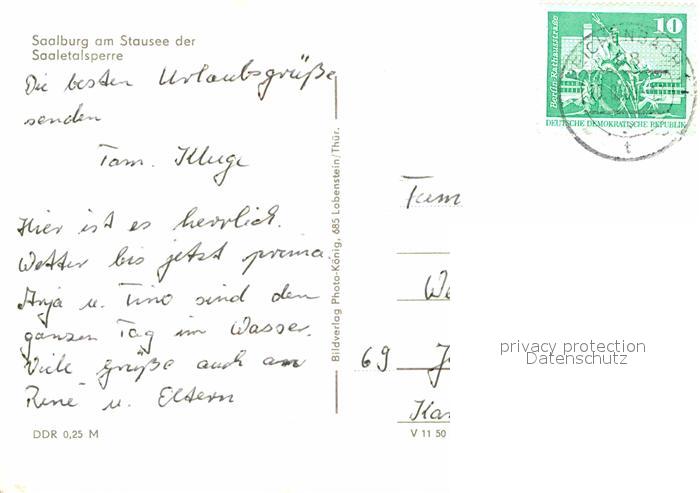 Saalburg am Stausee der
Saaletalsperre
Die besten Urlaubsgrüße
senden
Fam. Kluge
Hier ist es herrlich.
Wetter bis jetzt prima
Anja u. Tino sind den
ganzen Tag im Wasser.
Viele Grüße auch an
René u. Eltern
DDR 0,25 M
Bildverlag Photo-König, 685 Lobenstein/Thür.
10
Berlin · Rathausstraße
DEUTSCHE DEMOKRATISCHE REPUBLIK
Fam
We
69 J
Kar
V 11 50
privacy protection
Datenschutz